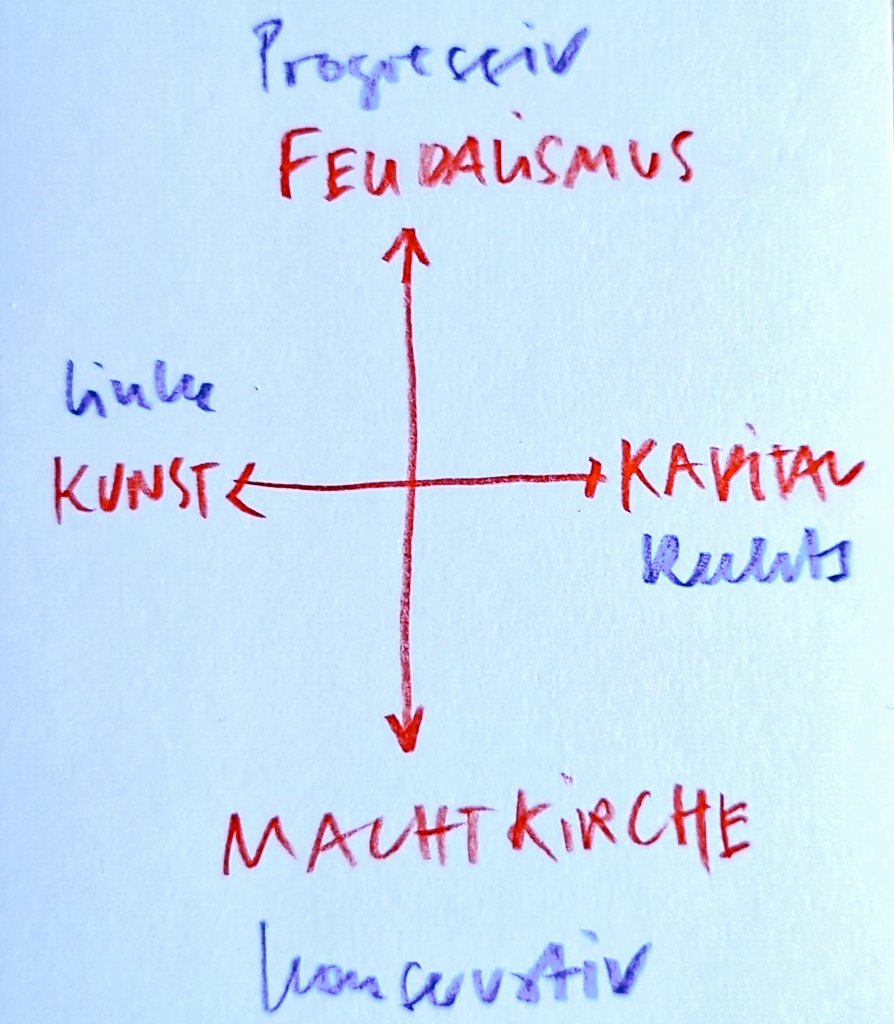 Progressiv
FEUDALISMUS
Linke
KUNST
KAPITAL
Rechts
MACHTKIRCHE
konservativ